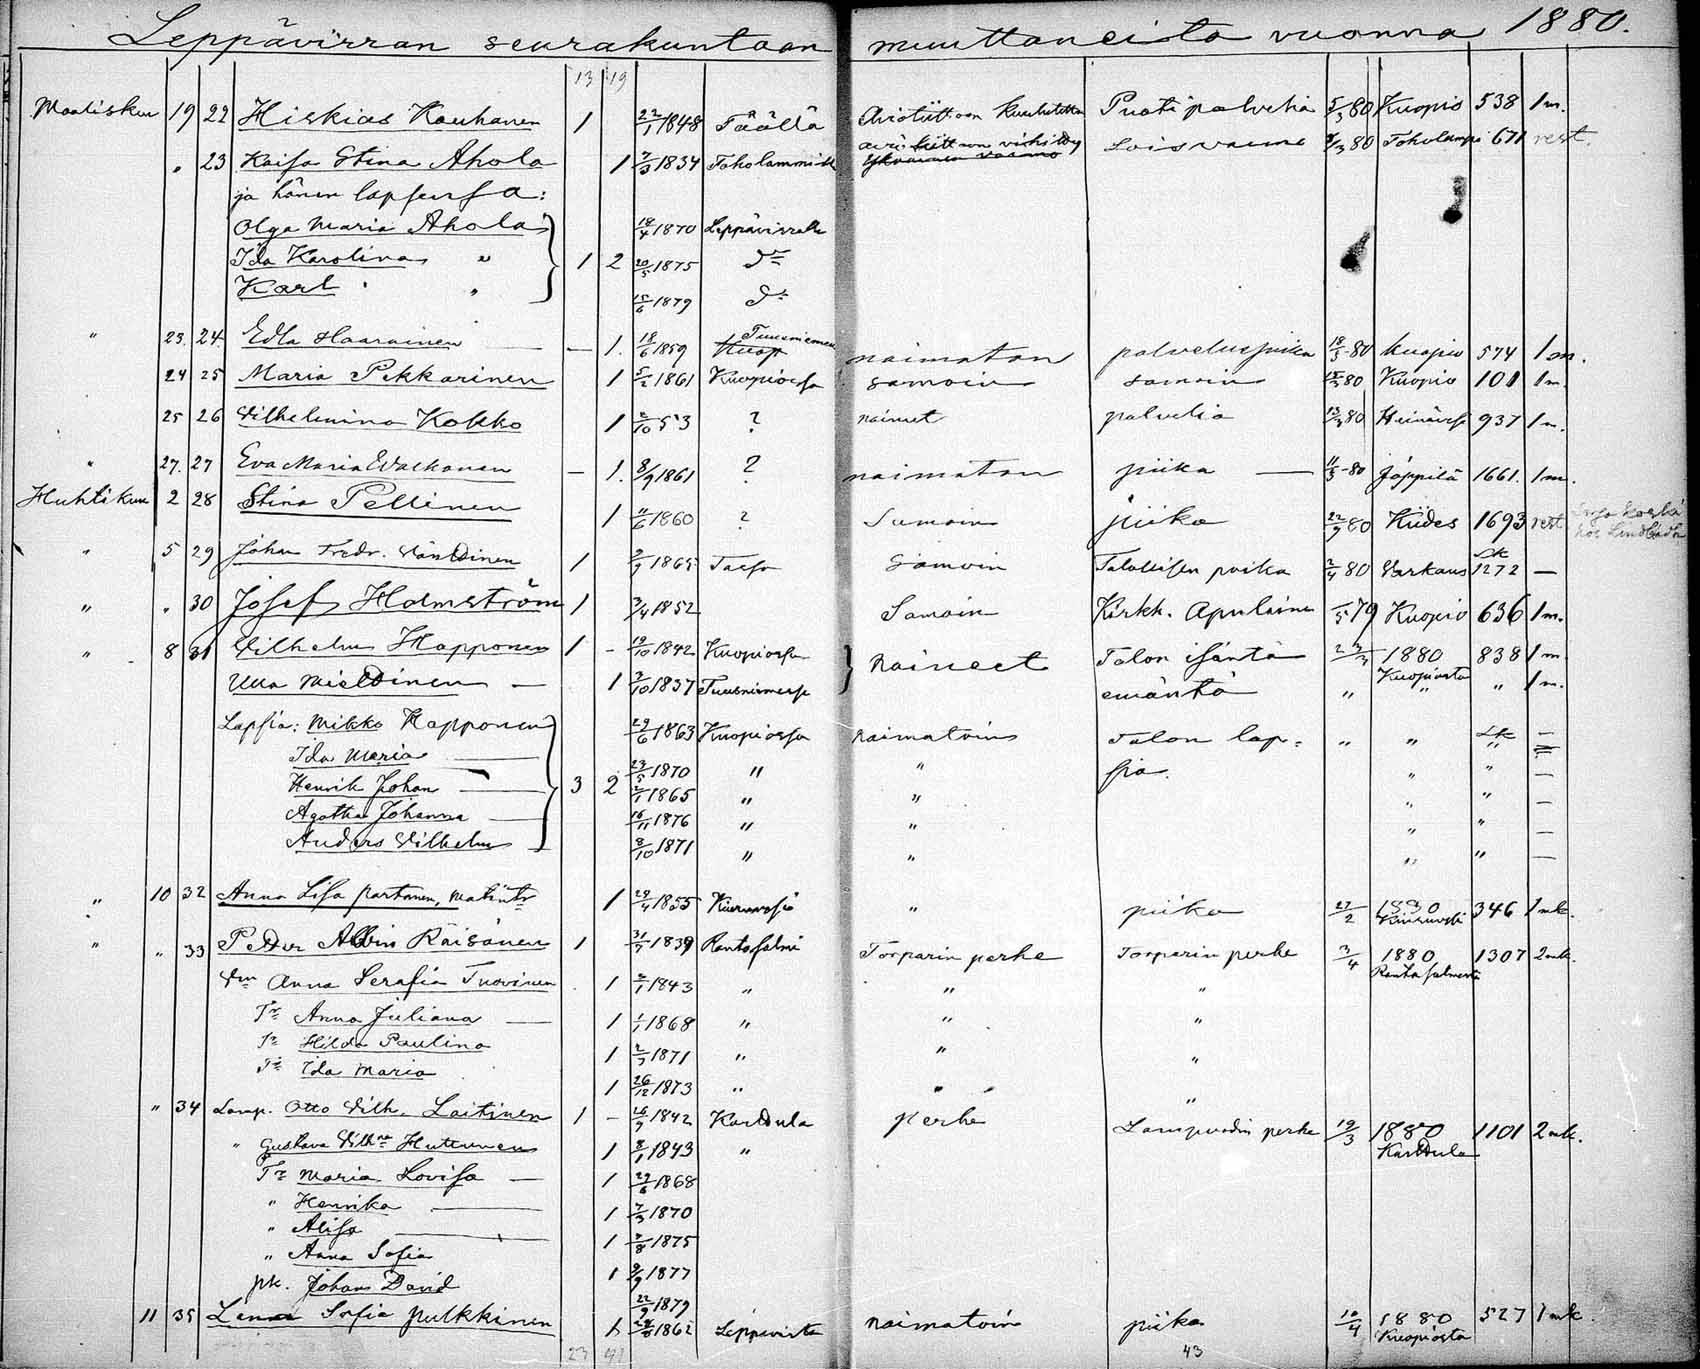 Leppävirran seurakuntaan muuttaneista vuonna 1880.
13 19
Maaliskuu 19 22 Hiskias Kauhanen 1 22/1 1848 Täällä Puoti palvelia 5/3 80 Kuopio 538 1 m.
" 23 Kaisa Stina Ahola 1 7/3 1834 Toholammilla Loisvaimo 80 Toholampi 671 rest.
ja hänen lapsensa:
Olga Maria Ahola 18/4 1870 Leppävirralla
Ida Karolina " 1 2 20/5 1875 Do
Karl " 15/6 1879 Do
" 23. 24. Edla Haarainen — — 1. 18/6 1859 Tuusniemen naimaton palveluspiika 18/3 -80 Kuopio 574 1 m.
24 25 Maria Pekkarinen 1 5/2 1861 Kuopiossa samoin samoin 80 Kuopio 101 1 m.
25 26 Vilhelmina Kokko 1 2/10 53 ? nainut palvelia 13/3 80 Heinävesi 937 1 m.
" 27. 27 Eva Maria — 1. 8/9 1861 ? naimaton piika — 11/3 -80 Jäppilä 1661. 1 m.
Huhtikuu 2 28 Stina Pellinen 1 11/6 1860 ? Samoin piika 80 Kides 1693 rest
" 5 29 Johan Fredr. 1 1865 Samoin Talollisen poika 2/4 80 Varkaus 1272 —
" " 30 Josef Holmström 1 3/4 1852 Samoin Kirkk. Apulainen 79 Kuopio 636 1 m.
" 8 31 Vilhelm Happonen 1 - 19/10 1842 Kuopiossa naineet Talon isäntä 1880 838 1 m
Ulla Mieldinen — 1 2/10 1837 Tuusniemessä emäntä " Kuopiosta " " 1 m.
Lapsia: Mikko Happonen 29/6 1863 Kuopiossa naimatoin Talon lap= " " —
Ida Maria — 23/5 1870 " " sia. " " —
Henrik Johan — 3 2 1865 " " " " —
Agatha Johanna — 16/11 1876 " " " " —
Anders Vilhelm — 8/10 1871 " " " " —
" 10 32 Anna Lisa Partanen, 1 29/4 1855 Kiuruvesi " piika 27/2 1880 Kiuruvesi 346 1 mk.
" " 33 Petter Albin Räisänen 1 31/7 1839 Rantasalmi Torparin perhe Torparin perhe 3/4 1880 Rantasalmesta 1307 2 mk.
Vm Anna Serafia Tuovinen 1 2/1 1843 " " "
Tr Anna Juliana — 1 1/1 1868 " " "
Tr Hilda Paulina 1 2/7 1871 " " "
Tr Ida Maria 1 26/12 1873 " " "
" 34 Lamp. Otto Vilh. Laitinen 1 - 1842 Karttula perhe Lampuodin perhe 19/3 1880 Karttula 1101 2 mk.
" Gustava Vilhna Huttunen 1 8/1 1843 "
Tr Maria Lovisa — 1 29/6 1868
" Henrika — 1 7/3 1870
" Alisa — 1 1875
" Anna Sofia 1 9/9 1877
pk. Johan David 22/9 1879
11 35 Lena Sofia Pulkkinen 1 1862 Leppävirta naimatoin piika 10/4 1880 Kuopiosta 527 1 mk.
23 41 43